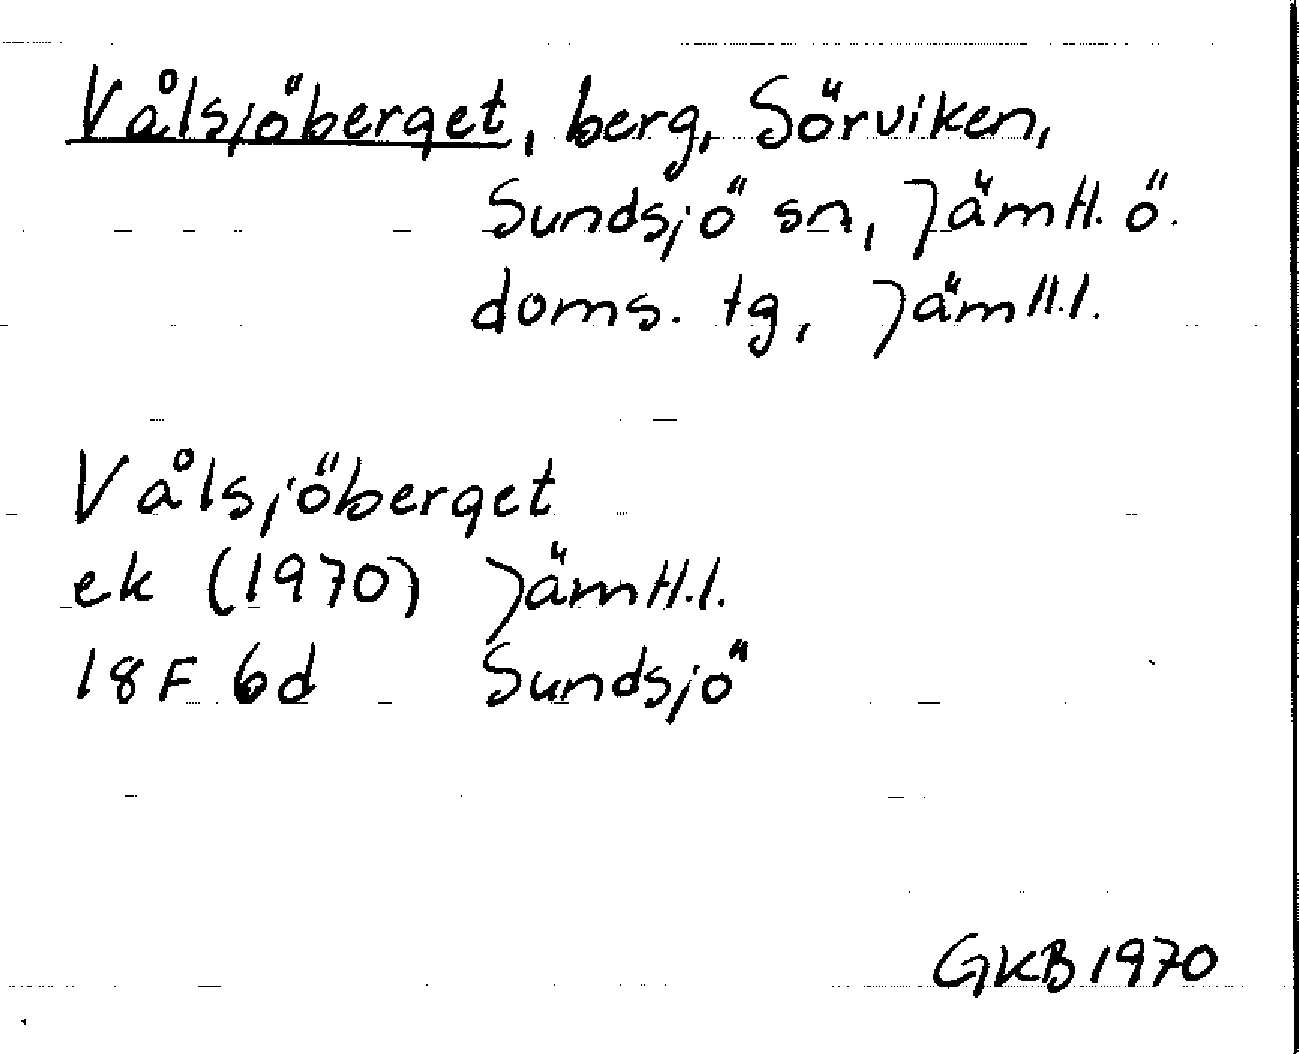 Vålsjöberget, berg, Sörviken,
Sundsjö sn, Jämtl. ö.
doms. tg, Jämtl.l.
Vålsjöberget
ek (1970) Jämtl.l.
18 F 6d Sundsjö
GKB 1970